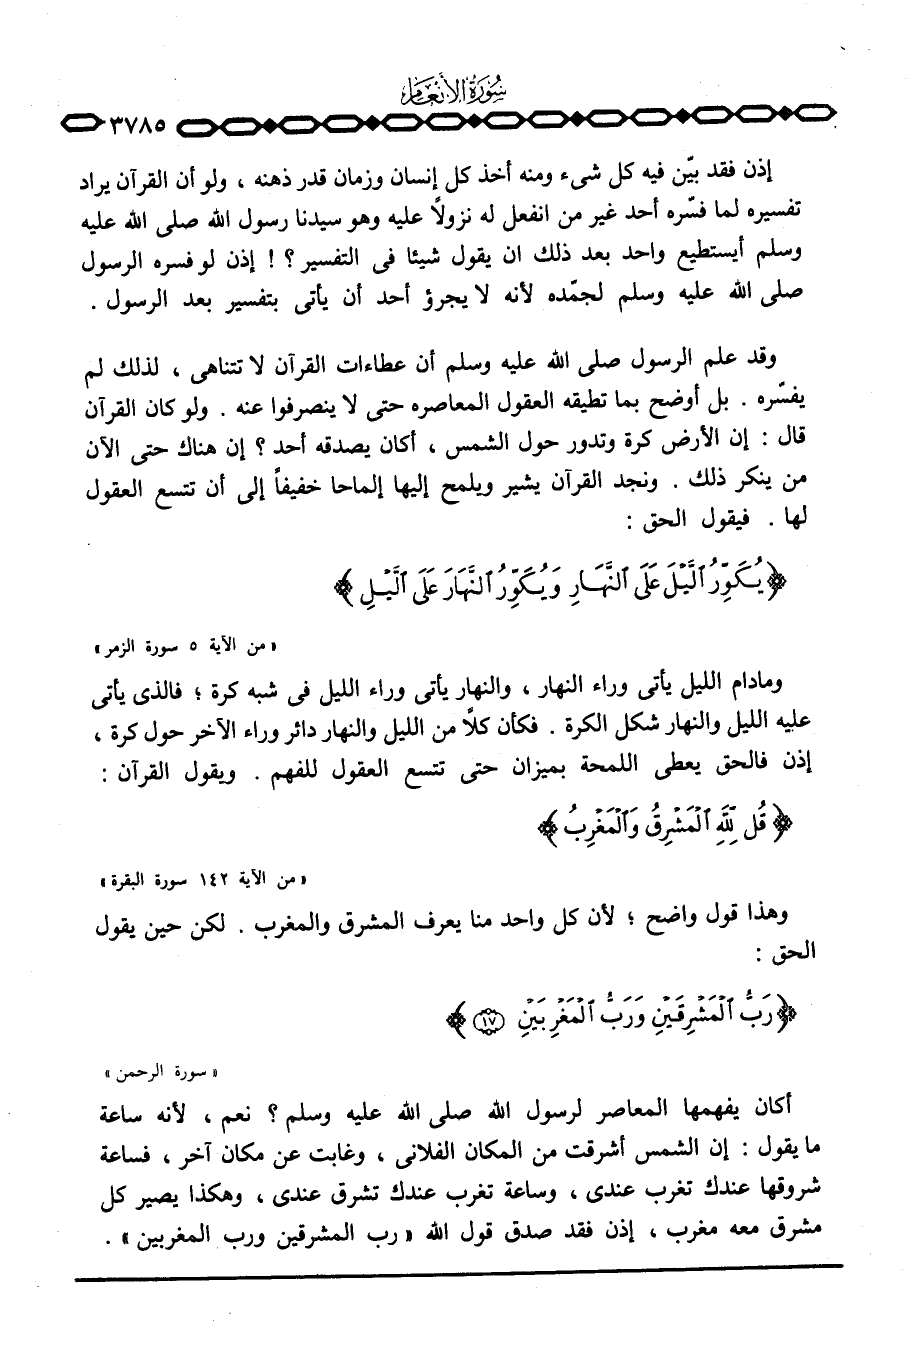 سُورَةُ الأَنْعَامِ
٣٧٨٥
إذن فقد بيّن فيه كل شىء ومنه أخذ كل إنسان وزمان قدر ذهنه ، ولو أن القرآن يراد
تفسيره لما فسّره أحد غير من انفعل له نزولاً عليه وهو سيدنا رسول الله صلى الله عليه
وسلم أيستطيع واحد بعد ذلك ان يقول شيئا فى التفسير ؟ ! إذن لو فسره الرسول
صلى الله عليه وسلم لجمّده لأنه لا يجرؤ أحد أن يأتى بتفسير بعد الرسول .
وقد علم الرسول صلى الله عليه وسلم أن عطاءات القرآن لا تتناهى ، لذلك لم
يفسّره . بل أوضح بما تطيقه العقول المعاصره حتى لا ينصرفوا عنه . ولو كان القرآن
قال : إن الأرض كرة وتدور حول الشمس ، أكان يصدقه أحد ؟ إن هناك حتى الآن
من ينكر ذلك . ونجد القرآن يشير ويلمح إليها إلماحا خفيفاً إلى أن تتسع العقول
لها . فيقول الحق :
﴿ يُكَوِّرُ ٱلَّيْلَ عَلَى ٱلنَّهَارِ وَيُكَوِّرُ ٱلنَّهَارَ عَلَى ٱلَّيْلِ ﴾
« من الآية ٥ سورة الزمر »
ومادام الليل يأتى وراء النهار ، والنهار يأتى وراء الليل فى شبه كرة ؛ فالذى يأتى
عليه الليل والنهار شكل الكرة . فكأن كلاً من الليل والنهار دائر وراء الآخر حول كرة ،
إذن فالحق يعطى اللمحة بميزان حتى تتسع العقول للفهم . ويقول القرآن :
﴿ قُل لِّلَّهِ ٱلْمَشْرِقُ وَٱلْمَغْرِبُ ﴾
« من الآية ١٤٢ سورة البقرة »
وهذا قول واضح ؛ لأن كل واحد منا يعرف المشرق والمغرب . لكن حين يقول
الحق :
﴿ رَبُّ ٱلْمَشْرِقَيْنِ وَرَبُّ ٱلْمَغْرِبَيْنِ ١٧ ﴾
« سورة الرحمن »
أكان يفهمها المعاصر لرسول الله صلى الله عليه وسلم ؟ نعم ، لأنه ساعة
ما يقول : إن الشمس أشرقت من المكان الفلانى ، وغابت عن مكان آخر ، فساعة
شروقها عندك تغرب عندى ، وساعة تغرب عندك تشرق عندى ، وهكذا يصير كل
مشرق معه مغرب ، إذن فقد صدق قول الله « رب المشرقين ورب المغربين » .